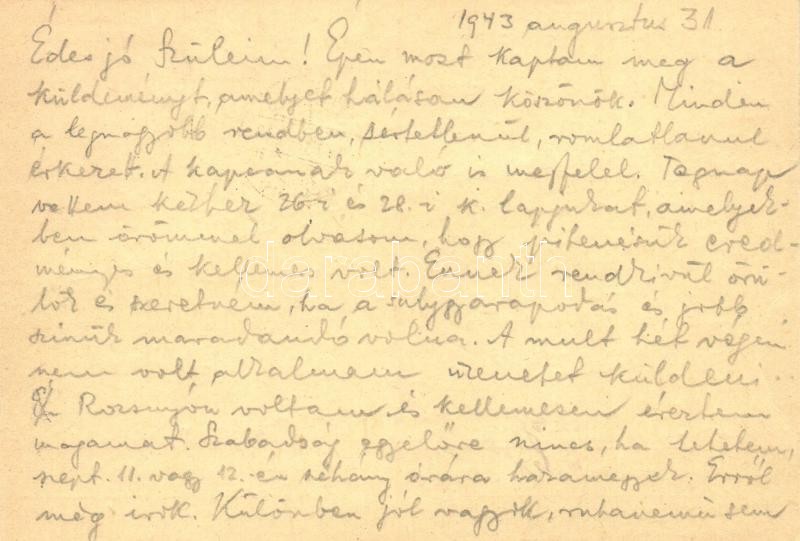 1943 augusztus 31
Édes jó Szüleim! Épen most kaptam meg a
küldeményt, amelyet hálásan köszönök. Minden
a legnagyobb rendben, sértetlenül, romlatlanul
érkezett. A kapcának való is megfelel. Tegnap
vettem kézhez 26-i és 28-i k. lapjukat, amelyek-
ben örömmel olvasom, hogy pihenésük ered-
ményes és kellemes volt. Ennek rendkívül örü-
lök és szeretném, ha a súlygyarapodás és jobb
szinük maradandó volna. A mult hét végén
nem volt alkalmam üzenetet küldeni.
Én Rozsnyón voltam és kellemesen éreztem
magamat. Szabadság egyelőre nincs, ha lehetem,
sept. 11. vagy 12.-én néhány órára hazamegyek. Erről
még irok. Különben jól vagyok, ruhanemü sem
darabanth